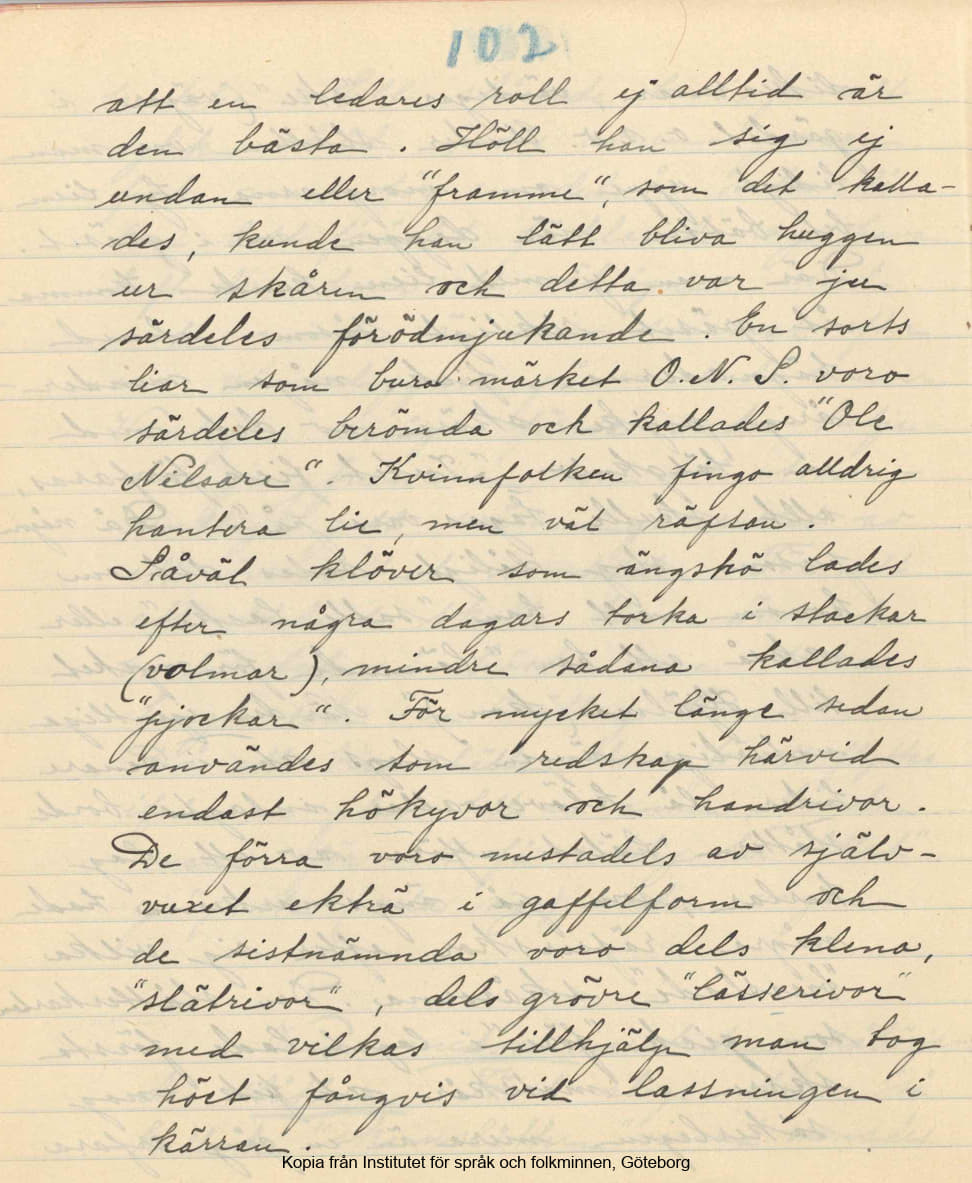 102
att en ledares roll ej alltid är
den bästa. Höll han sig ej
undan eller "framme", som det kalla-
des, kunde han lätt bliva huggen
ur skåren och detta var ju
särdeles förödmjukande. En sorts
liar som buro märket O.N.S. voro
särdeles berömda och kallades "Ole
Nilsare". Kvinnfolken fingo alldrig
hantera lie, men väl räfsan.
Såväl klöver som ängshö lades
efter några dagars torka i stackar
(volmar), mindre sådana kallades
"pjockar". För mycket länge sedan
användes som redskap härvid
endast hökyvor och handrivor.
De förra voro mestadels av själv-
vuxet ekträ i gaffelform och
de sistnämnda voro dels klena,
"slätrivor", dels grövre "lässerivor"
med vilkas tillhjälp man tog
höet fångvis vid lassningen i
kärran.
Kopia från Institutet för språk och folkminnen, Göteborg